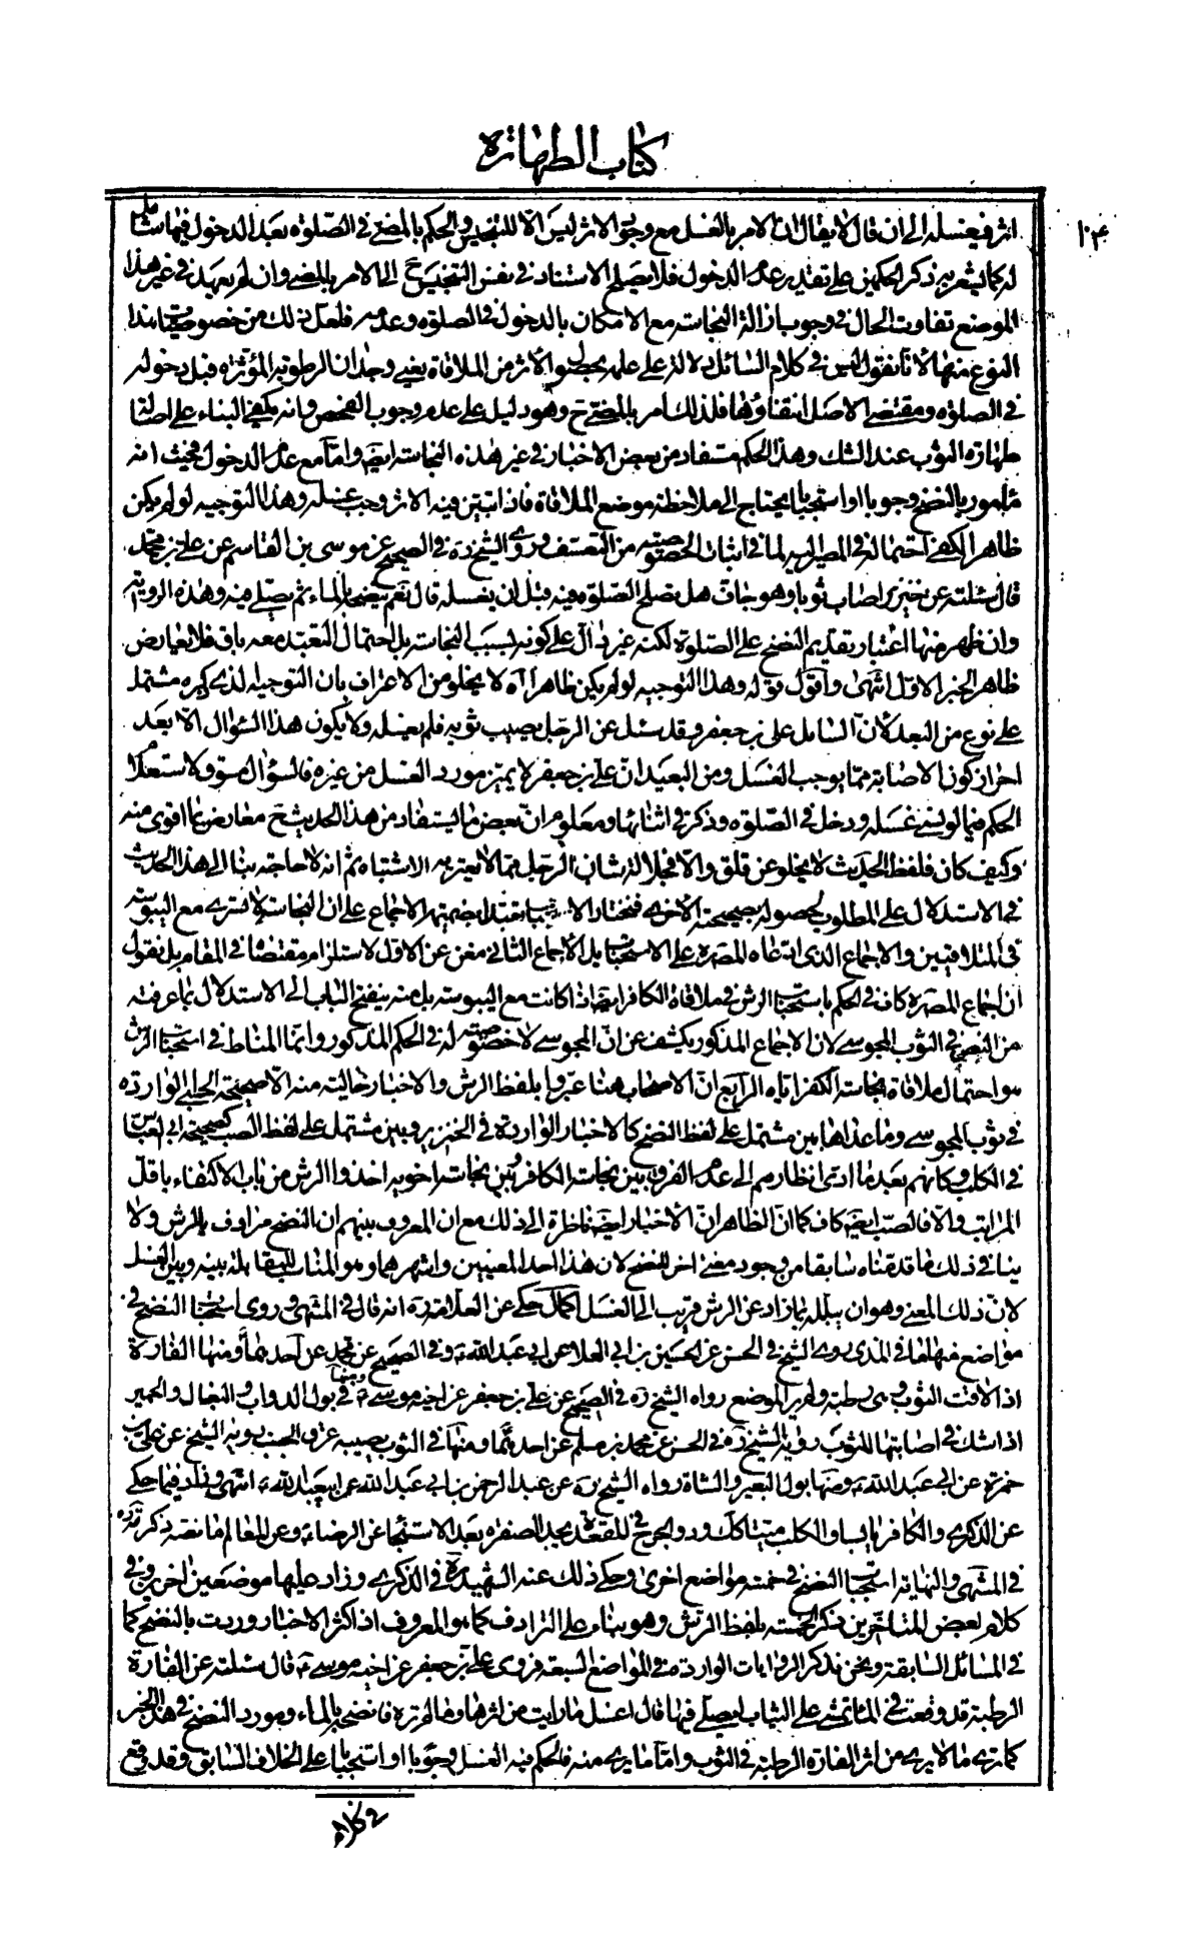 كتاب الطهارة
١٠٤
اثر فيغسله الى ان قال لا يقال ان الامر بالغسل مع وجود الاثر ليس الا للتنجيس والحكم بالمضي في الصلوة بعد الدخول فيها مناف
له كما يشعر به ذكر الحكمين على تقدير عدم الدخول فلا يصلح الاستناد في نفس التنجيس ح الى الامر بالمضي وان لم يعهد في غير هذا
الموضع تفاوت الحال في وجوب ازالة النجاسة مع الامكان بالدخول في الصلوة وعدمه فلعل ذلك من خصوصيات هذا
النوع منها لانا نقول ليس في كلام السائل دلالة على علمه بحصول الاثر من الملاقاة يعني وجدان الرطوبة المؤثرة قبل دخوله
في الصلوة ومقتضى الاصل انتفاؤها فلذلك امر بالمضي ح وهو دليل على عدم وجوب الفحص وانه يكفي البناء على اصالة
طهارة الثوب عند الشك وهذا الحكم مستفاد من بعض الاخبار في غير هذه النجاسة ايضا واما مع عدم الدخول فحيث انه
مامور بالنضح وجوبا او استحبابا يحتاج الى ملاحظة موضع الملاقاة فاذا تبين فيه الاثر وجب غسله وهذا التوجيه لو لم يكن
ظاهرا لكفى احتماله في المصير اليه لما في اثبات الخصوصية من التعسف وروى الشيخ ره في الصحيح عن موسى بن القاسم عن علي بن محمد
قال سئلته عن خنزير اصاب ثوبا وهو جاف هل تصلح الصلوة فيه قبل ان يغسله قال نعم ينضحه بالماء ثم يصلي فيه وهذه الرواية
وان ظهر منها اعتبار تقديم النضح على الصلوة لكنه غير دال على كونه لسبب النجاسة بل احتمال التعبد معه باق فلا يعارض
ظاهر الخبر الاول انتهى واقول قوله وهذا التوجيه لو لم يكن ظاهرا اه لا يخلو من الاعتراف بان التوجيه الذي ذكره مشتمل
على نوع من البعد لان السائل علي بن جعفر وقد سئل عن الرجل يصيب ثوبه فلم يغسله ولا يكون هذا السؤال الا بعد
احراز كون الاصابة مما يوجب الغسل ومن البعيد ان علي بن جعفر لا يميز مورد الغسل من غيره فالسؤال مسوق لاستعلام
الحكم فيما لو نسي غسله ودخل في الصلوة وذكر في اثنائها ومعلوم ان بعض ما يستفاد من هذا الحديث ح معارض بما اقوى منه
وكيف كان فلفظ الحديث لا يخلو عن قلق والا فجلالة شان الرجل مما لا يعتريه الاشتباه ثم انه لا حاجة بنا الى هذا الحديث
في الاستدلال على المطلوب لحصوله بصحيحته الاخرى فنختار الاستحباب بضميمة الاجماع على ان النجاسة لا تسري مع اليبوسة
في المتلاقيين والاجماع الذي ادعاه المصره على الاستحباب بل الاجماع الثاني مغن عن الاول لاستلزامه مقتضاه في المقام بل نقول
ان اجماع المصره كاف في الحكم باستحباب الرش في ملاقاة الكافر ايضا اذا كانت مع اليبوسة بل منه ينفتح الباب الى الاستدلال بما عرفته
من النص في الثوب المجوسي لان الاجماع المذكور يكشف عن ان المجوسي لا خصوصية له في الحكم المذكور وانما المناط في استحباب الرش
هو احتمال ملاقاة نجاسة الكفر اياه الرابع ان الاصحاب هنا عبروا بلفظ الرش والاخبار خالية منه الا صحيحة الحلبي الواردة
في ثوب المجوسي وما عداها بين مشتمل على لفظ النضح كالاخبار الواردة في الخنزير وبين مشتمل على لفظ الصب كصحيحة ابي العباس
في الكلب وكانهم بعد ما ادى انظارهم الى عدم الفرق بين نجاسة الكافر وبين نجاسة اخويه اخذوا الرش من باب الاكتفاء باقل
المراتب والا فالصب ايضا كاف كما ان الظاهر ان الاخبار ايضا ناظرة الى ذلك مع ان المعروف بينهم ان النضح مرادف للرش ولا
ينافي ذلك ما قدمناه سابقا من وجود معنى اخر للنضح لان هذا احد المعنيين واشهرهما وهو المناسب للمقابلة بينه وبين الغسل
لان ذلك المعنى وهو ان يبلله بما زاد عن الرش قريب الى الغسل اكمال حكي عن العلامة ره انه قال في المنتهى وروى استحباب النضح في
مواضع منها المذي رواه الشيخ في الحسن عن الحسين بن ابي العلا عن ابي عبد الله ع وفي الصحيح عن محمد عن احدهما ع ومنها الفارة
اذا لاقت الثوب وهي رطبة ولم ير الموضع رواه الشيخ ره في الصحيح عن علي بن جعفر عن اخيه موسى ع ومنها في بول الدواب والبغال والحمير
اذا شك في اصابتها للثوب رواية الشيخ ره في الحسن عن محمد بن مسلم عن احدهما ومنها في الثوب يصيبه عرق الجنب رواية الشيخ عن علي بن
حمزة عن ابي عبد الله ع ومنها بول البعير والشاة رواه الشيخ ره عن عبد الرحمن بن ابي عبد الله عن ابي عبد الله ع انتهى وزاد فيما حكي
عن الذكرى والكافر يابسا والكلب ميتا كك وذو الجرح في المقعدة يجد الصفرة بعد الاستنجاء عن الرضا ع وعن المعالم ما نصه ذكر العلامة ره
في المنتهى والنهاية استحباب النضح في خمسة مواضع اخرى وحكي ذلك عنه الشهيد ره في الذكرى وزاد عليها موضعين اخرين وفي
كلام بعض المتاخرين ذكر الخمسة بلفظ الرش وهو بناء على الترادف كما هو المعروف اذ اكثر الاخبار وردت بالنضح كما
في المسائل السابقة ونحن نذكر الروايات الواردة في المواضع السبعة فروى علي بن جعفر عن اخيه موسى ع قال سئلته عن الفارة
الرطبة قد وقعت في الماء تمشي على الثياب ايصلي فيها قال اغسل ما رايت من اثرها وما لم تره فانضحه بالماء ومورد النضح في هذا الخبر
كما ترى ما لا يرى من اثر الفارة الرطبة في الثوب واما ما يرى منه فالحكم فيه الغسل وجوبا او استحبابا على الخلاف السابق وقد وقع